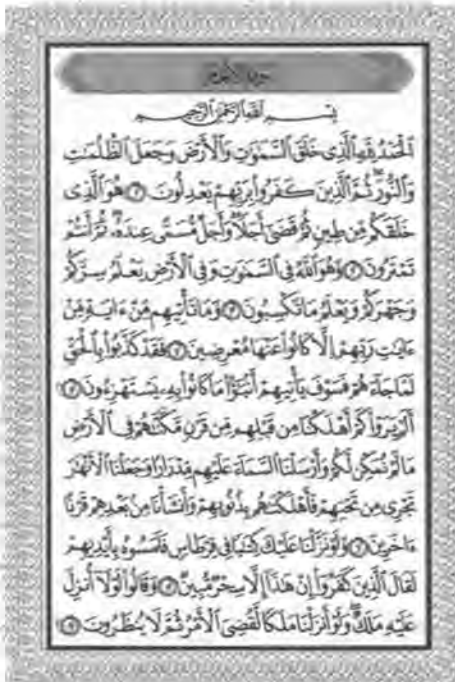 سورة الأنعام
بِسْمِ ٱللَّهِ ٱلرَّحْمَٰنِ ٱلرَّحِيمِ
ٱلْحَمْدُ لِلَّهِ ٱلَّذِى خَلَقَ ٱلسَّمَٰوَٰتِ وَٱلْأَرْضَ وَجَعَلَ ٱلظُّلُمَٰتِ
وَٱلنُّورَ ثُمَّ ٱلَّذِينَ كَفَرُوا۟ بِرَبِّهِمْ يَعْدِلُونَ هُوَ ٱلَّذِى
خَلَقَكُم مِّن طِينٍ ثُمَّ قَضَىٰٓ أَجَلًا وَأَجَلٌ مُّسَمًّى عِندَهُۥ ثُمَّ أَنتُمْ
تَمْتَرُونَ وَهُوَ ٱللَّهُ فِى ٱلسَّمَٰوَٰتِ وَفِى ٱلْأَرْضِ يَعْلَمُ سِرَّكُمْ
وَجَهْرَكُمْ وَيَعْلَمُ مَا تَكْسِبُونَ وَمَا تَأْتِيهِم مِّنْ ءَايَةٍ مِّنْ
ءَايَٰتِ رَبِّهِمْ إِلَّا كَانُوا۟ عَنْهَا مُعْرِضِينَ فَقَدْ كَذَّبُوا۟ بِٱلْحَقِّ
لَمَّا جَآءَهُمْ فَسَوْفَ يَأْتِيهِمْ أَنۢبَٰٓؤُا۟ مَا كَانُوا۟ بِهِۦ يَسْتَهْزِءُونَ
أَلَمْ يَرَوْا۟ كَمْ أَهْلَكْنَا مِن قَبْلِهِم مِّن قَرْنٍ مَّكَّنَّٰهُمْ فِى ٱلْأَرْضِ
مَا لَمْ نُمَكِّن لَّكُمْ وَأَرْسَلْنَا ٱلسَّمَآءَ عَلَيْهِم مِّدْرَارًا وَجَعَلْنَا ٱلْأَنْهَٰرَ
تَجْرِى مِن تَحْتِهِمْ فَأَهْلَكْنَٰهُم بِذُنُوبِهِمْ وَأَنشَأْنَا مِنۢ بَعْدِهِمْ قَرْنًا
ءَاخَرِينَ وَلَوْ نَزَّلْنَا عَلَيْكَ كِتَٰبًا فِى قِرْطَاسٍ فَلَمَسُوهُ بِأَيْدِيهِمْ
لَقَالَ ٱلَّذِينَ كَفَرُوٓا۟ إِنْ هَٰذَآ إِلَّا سِحْرٌ مُّبِينٌ وَقَالُوا۟ لَوْلَآ أُنزِلَ
عَلَيْهِ مَلَكٌ وَلَوْ أَنزَلْنَا مَلَكًا لَّقُضِىَ ٱلْأَمْرُ ثُمَّ لَا يُنظَرُونَ